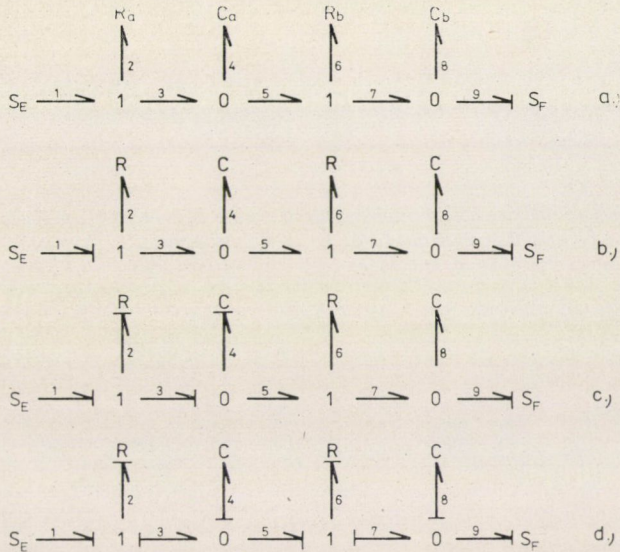 Ra Ca Rb Cb
2 4 6 8
SE 1 1 3 0 5 1 7 0 9 SF a.)
R C R C
2 4 6 8
SE 1 1 3 0 5 1 7 0 9 SF b.)
R C R C
2 4 6 8
SE 1 1 3 0 5 1 7 0 9 SF c.)
R C R C
2 4 6 8
SE 1 1 3 0 5 1 7 0 9 SF d.)